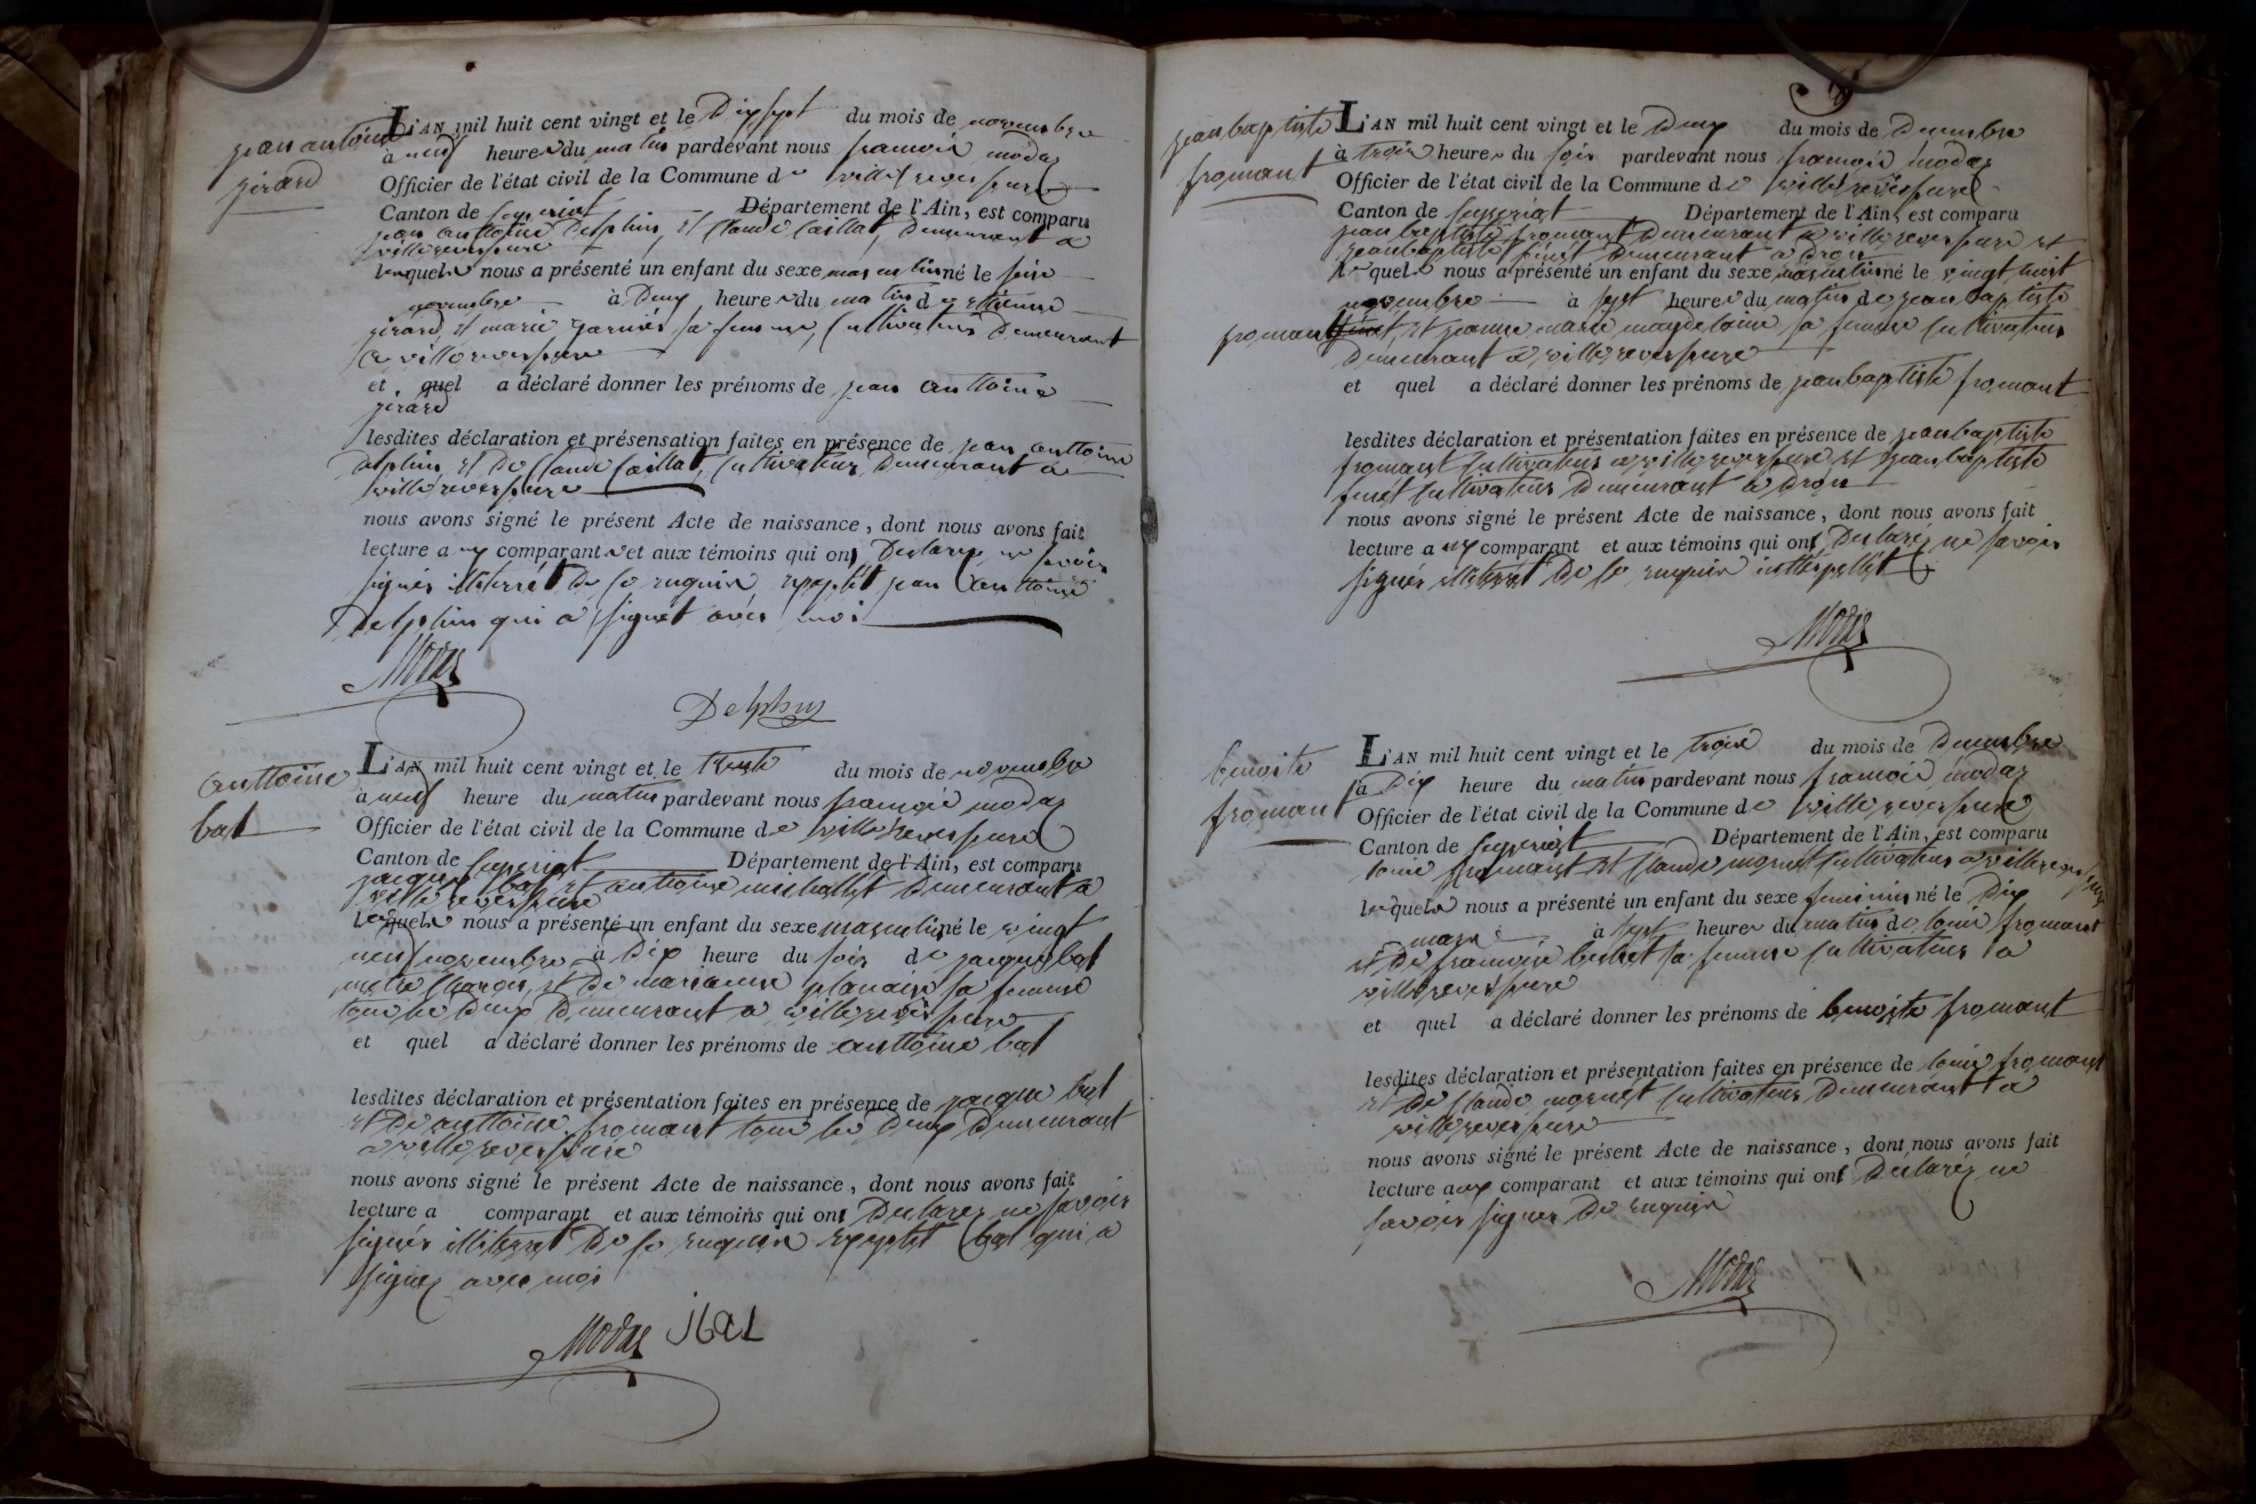 jean antoine
girard
L'AN mil huit cent vingt et le Dixsept du mois de novembre
à neuf heure du matin pardevant nous francois modas
Officier de l'état civil de la Commune de villereversure
Canton de Ceyzeriat Département de l'Ain, est comparu
jean anttoine Delphin, et Claude Caillat, Demeurant a
villereversure
lesquels nous a présenté un enfant du sexe masculin né le seise
novembre à Deux heure du matin de ettienne
girard, et marie garnier sa femme, Cultivateurs Demeurant
a villereversure
et quel a déclaré donner les prénoms de jean anttoine
girard
lesdites déclaration et présensation faites en présence de jean anttoine
Delphin, et De Claude Caillat, Cultivateurs Demeurant a
villereversure
nous avons signé le présent Acte de naissance, dont nous avons fait
lecture a ux comparant et aux témoins qui ont Declarez ne savoir
signér illiterrét De ce enquis, exceptét jean anttoine
Delphin qui a signét avec moi
Modas
Delphin
anttoine
bal
L'AN mil huit cent vingt et le trente du mois de novembre
à neuf heure du matin pardevant nous francois modas
Officier de l'état civil de la Commune de villereversure
Canton de Ceyzeriat Département de l'Ain, est comparu
jacque bal et anttoine michallet Demeurant a
villereversure
lesquels nous a présenté un enfant du sexe masculin né le vingt
neuf novembre à Dix heure du soir de jacque bal
et De marianne sa femme
tous les Deux Demeurant a villereversure
et quel a déclaré donner les prénoms de anttoine bal
lesdites déclaration et présentation faites en présence de jacque bal
et De anttoine fromant tous les Deux Demeurant
a villereversure
nous avons signé le présent Acte de naissance, dont nous avons fait
lecture a comparant et aux témoins qui ont Declarez ne savoir
signér illiterret De ce enquis exceptét bal qui a
signez avec moi
Modas jbal
jeanbaptiste
fromant
L'AN mil huit cent vingt et le Deux du mois de Decembre
à trois heure du soir pardevant nous francois modas
Officier de l'état civil de la Commune de villereversure
Canton de Ceyzeriat Département de l'Ain, est comparu
jean baptiste fromant Demeurant a villereversure et
jeanbaptiste Demeurant a Drom
lesquels nous a présenté un enfant du sexe masculin né le vingt huit
novembre à sept heure du matin de jean baptiste
fromant et jeanne marie maydelaine sa femme Cultivateurs
Demeurant a villereversure
et quel a déclaré donner les prénoms de jeanbaptiste fromant
lesdites déclaration et présentation faites en présence de jeanbaptiste
fromant Cultivateurs a villereversure et jeanbaptiste
Cultivateurs Demeurant a Drom
nous avons signé le présent Acte de naissance, dont nous avons fait
lecture a ux comparant et aux témoins qui ont Declaréz ne savoir
signér illiterrét De ce enquis
Modas
benoite
froman
L'AN mil huit cent vingt et le trois du mois de Decembre
à Dix heure du matin pardevant nous francois modas
Officier de l'état civil de la Commune de villereversure
Canton de Ceyzeriat Département de l'Ain, est comparu
louis fromant et Claude mornét Cultivateurs a villereversure
lesquels nous a présenté un enfant du sexe feminin né le Dix
à sept heure du matin de louis fromant
et De francoise sa femme Cultivateurs a
villereversure
et quel a déclaré donner les prénoms de benoite fromant
lesdites déclaration et présentation faites en présence de louis fromant
et De Claude mornét Cultivateurs Demeurant a
villereversure
nous avons signé le présent Acte de naissance, dont nous avons fait
lecture aux comparant et aux témoins qui ont Declaréz ne
savoir signer De enquis
Modas